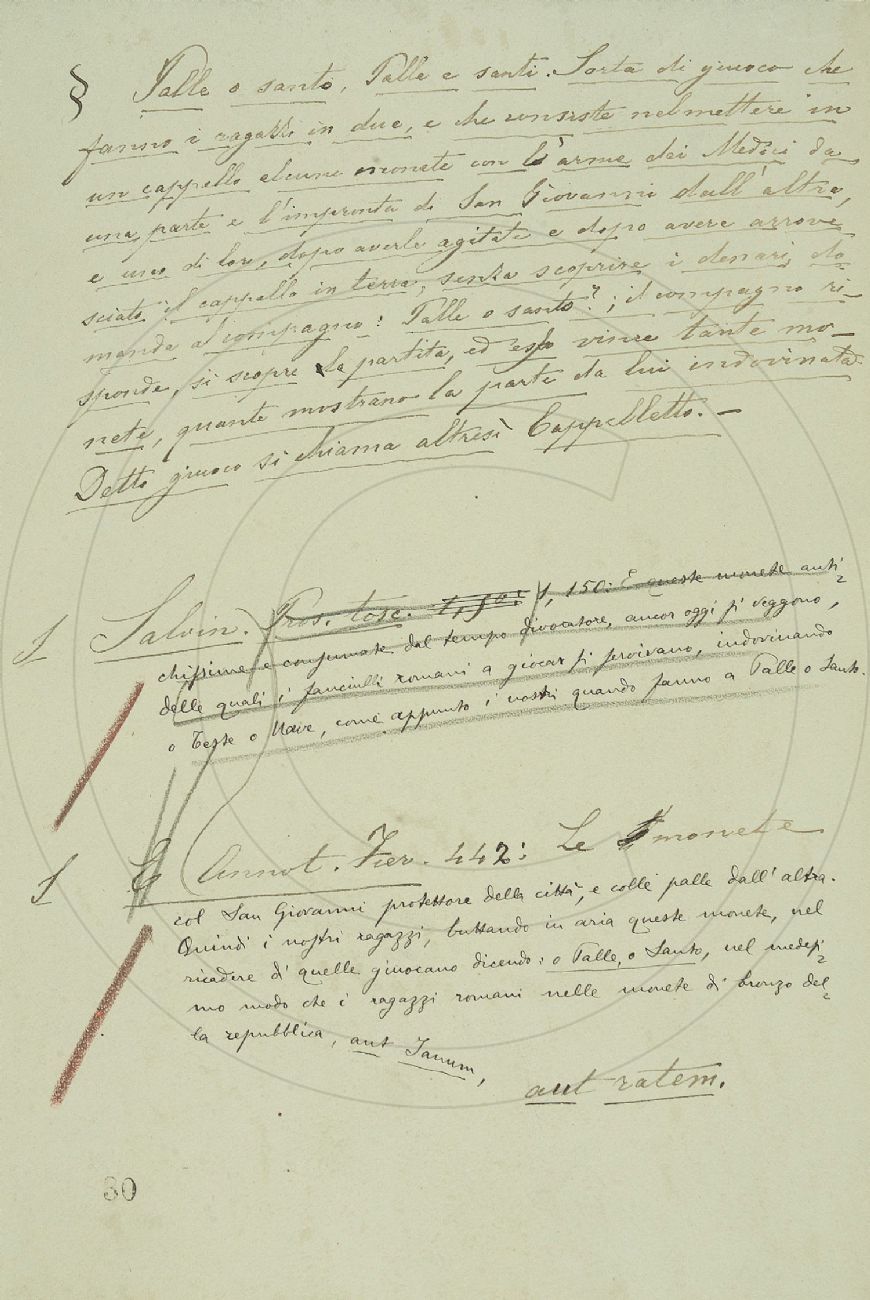 § Palle o santo, Palle e santi. Sorta di giuoco che
fanno i ragazzi in due, e che consiste nel mettere in
un cappello alcune monete con l'arme dei Medici da
una parte e l'impronta di San Giovanni dall'altra,
e uno di loro, dopo averle agitate e dopo avere arrove
sciato il cappello in terra, senza scoprire i denari, do
manda al compagno: Palle o santo?; il compagno ri-
sponde, si scopre la partita, ed esso vince tante mo-
nete, quante mostrano la parte da lui indovinata.
Detto giuoco si chiama altresì Cappelletto. —
Salvin. Pros. tosc. 1, 150: E queste monete anti=
chissime e consumate dal tempo divoratore, ancor oggi si veggono,
delle quali i fanciulli romani a giocar si servivano, indovinando
o Teste o Nave, come appunto i nostri quando fanno a Palle o Santo.
E Annot. Fier. 442: Le monete
col San Giovanni protettore della città, e colle palle dall'altra.
Quindi i nostri ragazzi, buttando in aria queste monete, nel
ricadere di quelle giuocano dicendo: o Palle, o Santo, nel medesi=
mo modo che i ragazzi romani nelle monete di bronzo del=
la repubblica, aut Janum,
aut ratem.
30